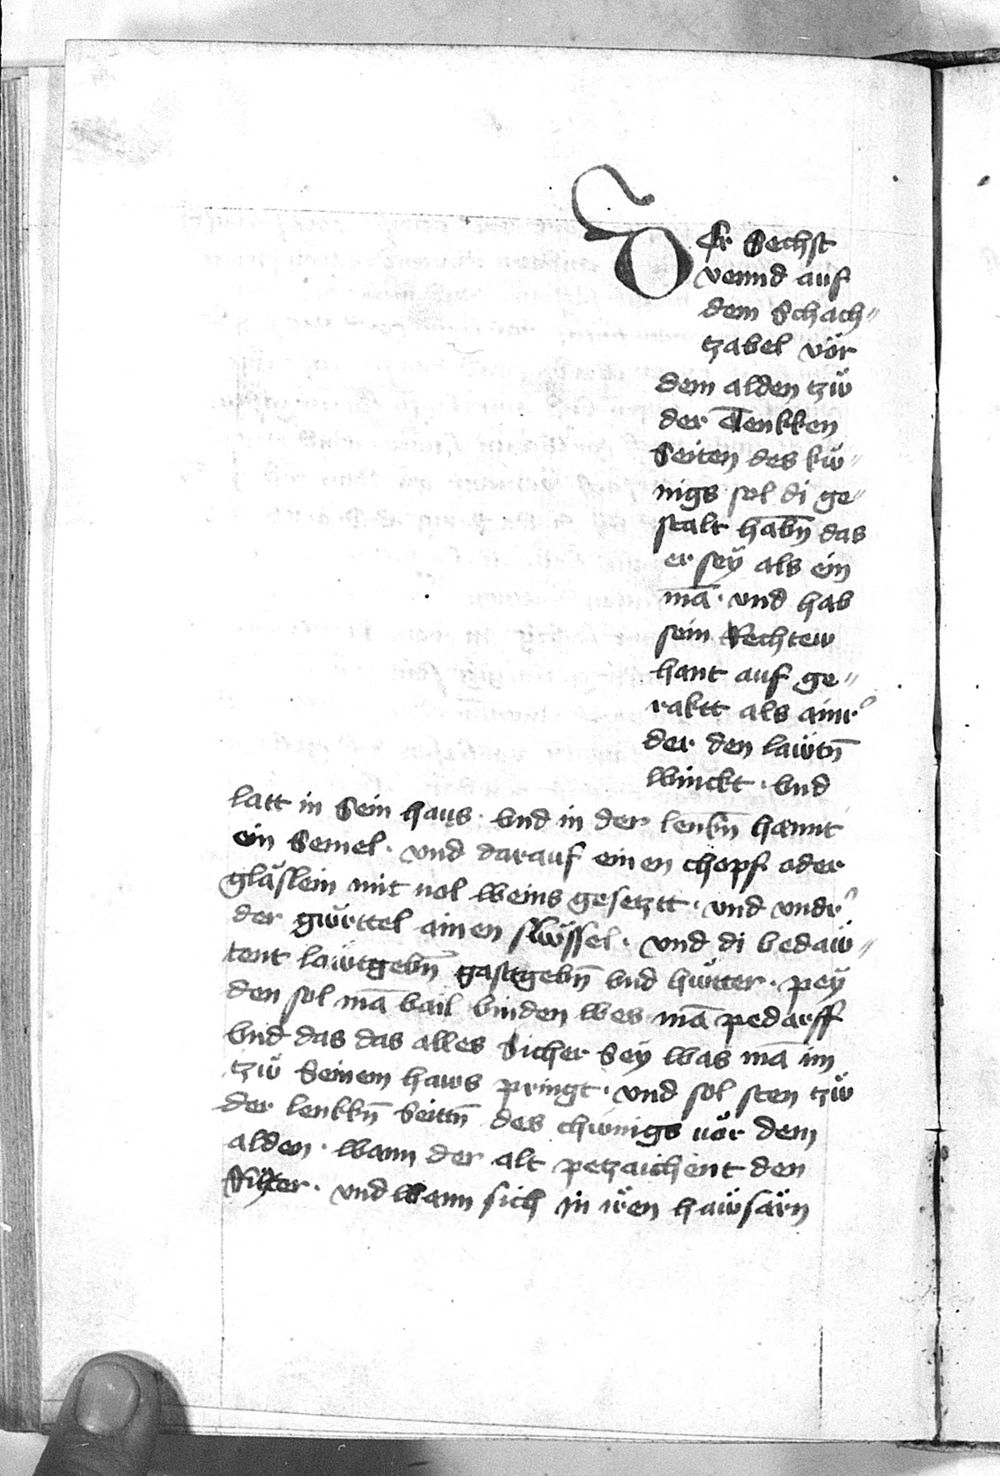 DEr Sechst
vennd auf
dem Schach-
tzabel vör
dem alden tzẅ
der Tenkken
Seiten des kẅ-
nigs sol di ge-
stalt habn̄ das
er seÿ als ein
mā · vnd hab
sein Rechtew
hant auf ge-
raktt als ainr
der den laẅtn̄
winckt · Vnd
latt in Sein haus · Vnd in der lenkn̄ hannt
ein Semel · vnd darauf einen chopf oder
gläslein mit uol weins gesetztt · vnd vndr
der gürttel ainen slẅssel · vnd di bedaẅ-
tent laẅtgebn̄ gastgebn̄ vnd hẅtter · peÿ
den sol mā vail vinden wes mā pedarff
Vnd das das alles Sicher Seÿ was mā im
tzẅ Seinem haws pringt · vnd sol sten tzẅ
der lenkkn̄ Seittn̄ des chẅnigs uör dem
alden · wann der alt petzaichent den
Richter · vnd wann sich in iren haẅsärn